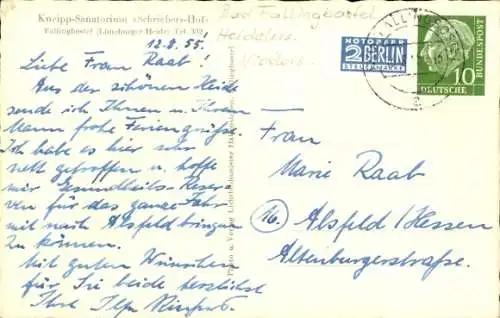 Kneipp-Sanatorium »Schriebers-Hof«
Fallingbostel (Lüneburger Heide) Tel. 392
12.8.55.
Liebe Frau Raab!
Aus der schönen Heide
sende ich Ihnen u. Ihrem
Mann frohe Feriengrüße.
Ich habe es hier sehr
nett getroffen u. hoffe
mir Gesundheits-Reser-
ven für das ganze Jahr
mit nach Alsfeld bringen
zu können.
Mit guten Wünschen
für Sie beide herzlichst
Ihre Ilse
Bad Fallingbostel
Heidekrs.
NOTOPFER
2 BERLIN
STEUERMARKE
10
DEUTSCHE
BUNDESPOST
a
Frau
Marie Raab
16
Alsfeld / Hessen
Altenburgerstraße.